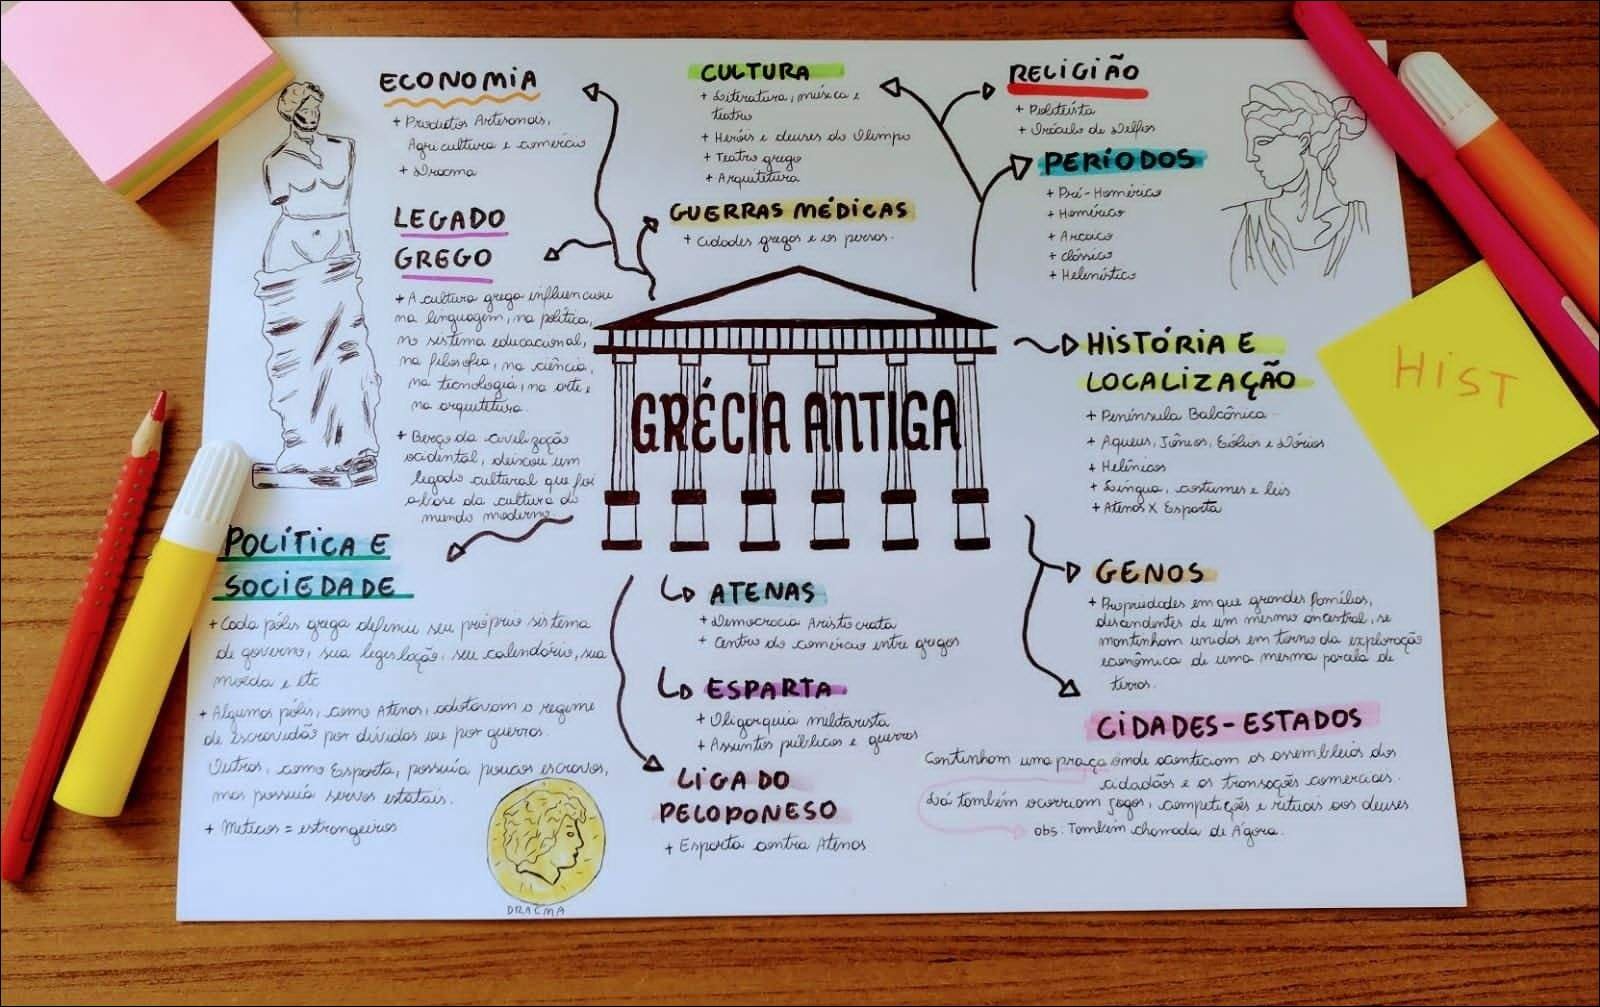 ECONOMIA
+ Produtos Artesanais,
Agricultura e comércio
+ Dracma
LEGADO
GREGO
+ A cultura grega influenciou
na linguagem, na política,
no sistema educacional,
na filosofia, na ciência,
na tecnologia, na arte e
na arquitetura.
+ Berço da civilização
ocidental, deixou um
legado cultural que foi
a base da cultura do
mundo moderno.
CULTURA
+ Literatura, música e
teatro
+ Heróis e deuses do Olimpo
+ Teatro grego
+ Arquitetura
GUERRAS MÉDICAS
+ Cidades gregas e os persas.
RELIGIÃO
+ Politeísta
+ Oráculo de Delfos
PERÍODOS
+ Pré-Homérico
+ Homérico
+ Arcaico
+ Clássico
+ Helenístico
GRÉCIA ANTIGA
HISTÓRIA E
LOCALIZAÇÃO
+ Península Balcânica
+ Aqueus, Jônios, Eólios e Dórios
+ Helênicos
+ Língua, costumes e leis
+ Atenas X Esparta
HIST
POLÍTICA E
SOCIEDADE
+ Cada pólis grega definiu seu próprio sistema
de governo, sua legislação, seu calendário, sua
moeda e etc
+ Algumas pólis, como Atenas, adotavam o regime
de escravidão por dívidas ou por guerras.
Outras, como Esparta, possuía poucos escravos,
mas possuía servos estatais.
+ Metecos = estrangeiros
DRACMA
ATENAS
+ Democracia Aristocrata
+ Centro do comércio entre gregos
ESPARTA
+ Oligarquia militarista
+ Assuntos públicos e guerras
LIGA DO
PELOPONESO
+ Esparta contra Atenas
GENOS
+ Propriedades em que grandes famílias,
descendentes de um mesmo ancestral, se
mantinham unidas em torno da exploração
econômica de uma mesma parcela de
terras.
CIDADES-ESTADOS
Continham uma praça onde aconteciam as assembleias dos
cidadãos e as transações comerciais.
Lá também ocorriam jogos, competições e rituais aos deuses
obs: Também chamada de Ágora.